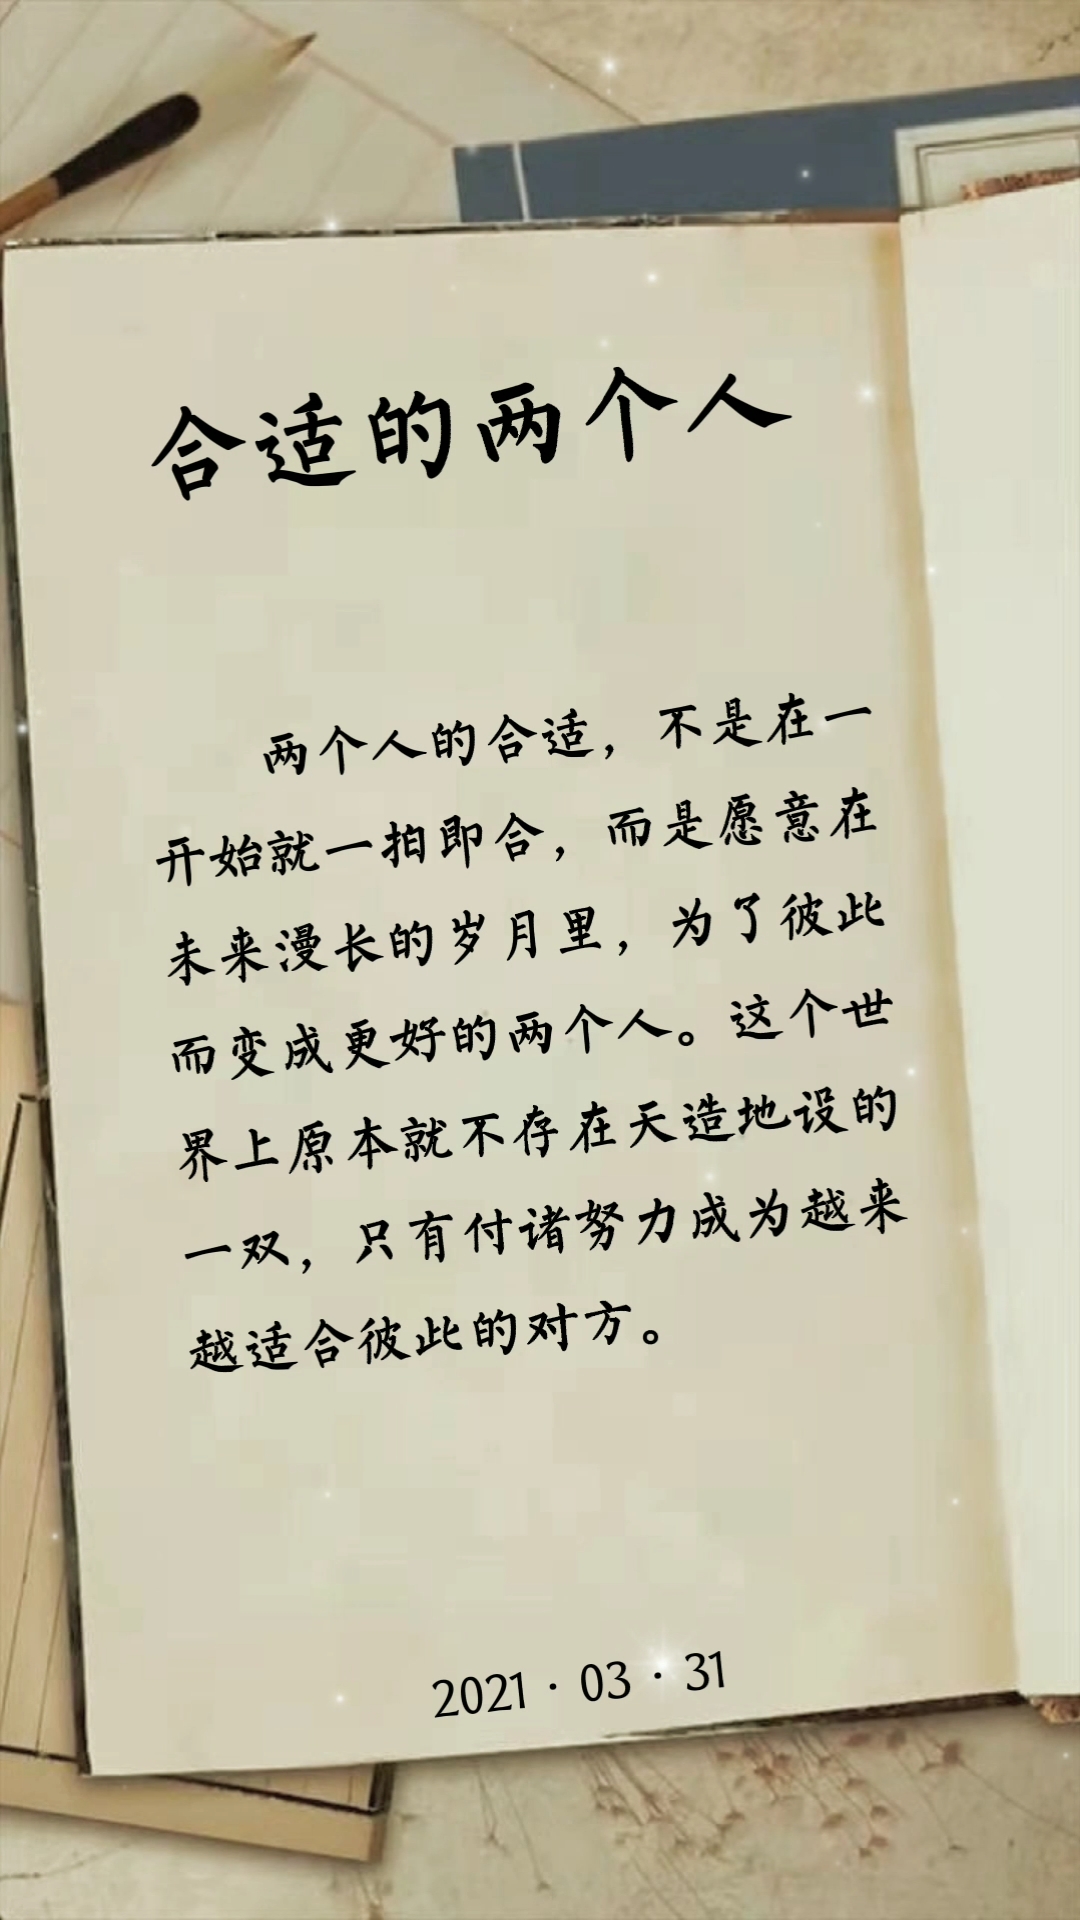 合适的两个人
两个人的合适，不是在一
开始就一拍即合，而是愿意在
未来漫长的岁月里，为了彼此
而变成更好的两个人。这个世
界上原本就不存在天造地设的
一双，只有付诸努力成为越来
越适合彼此的对方。
2021·03·31